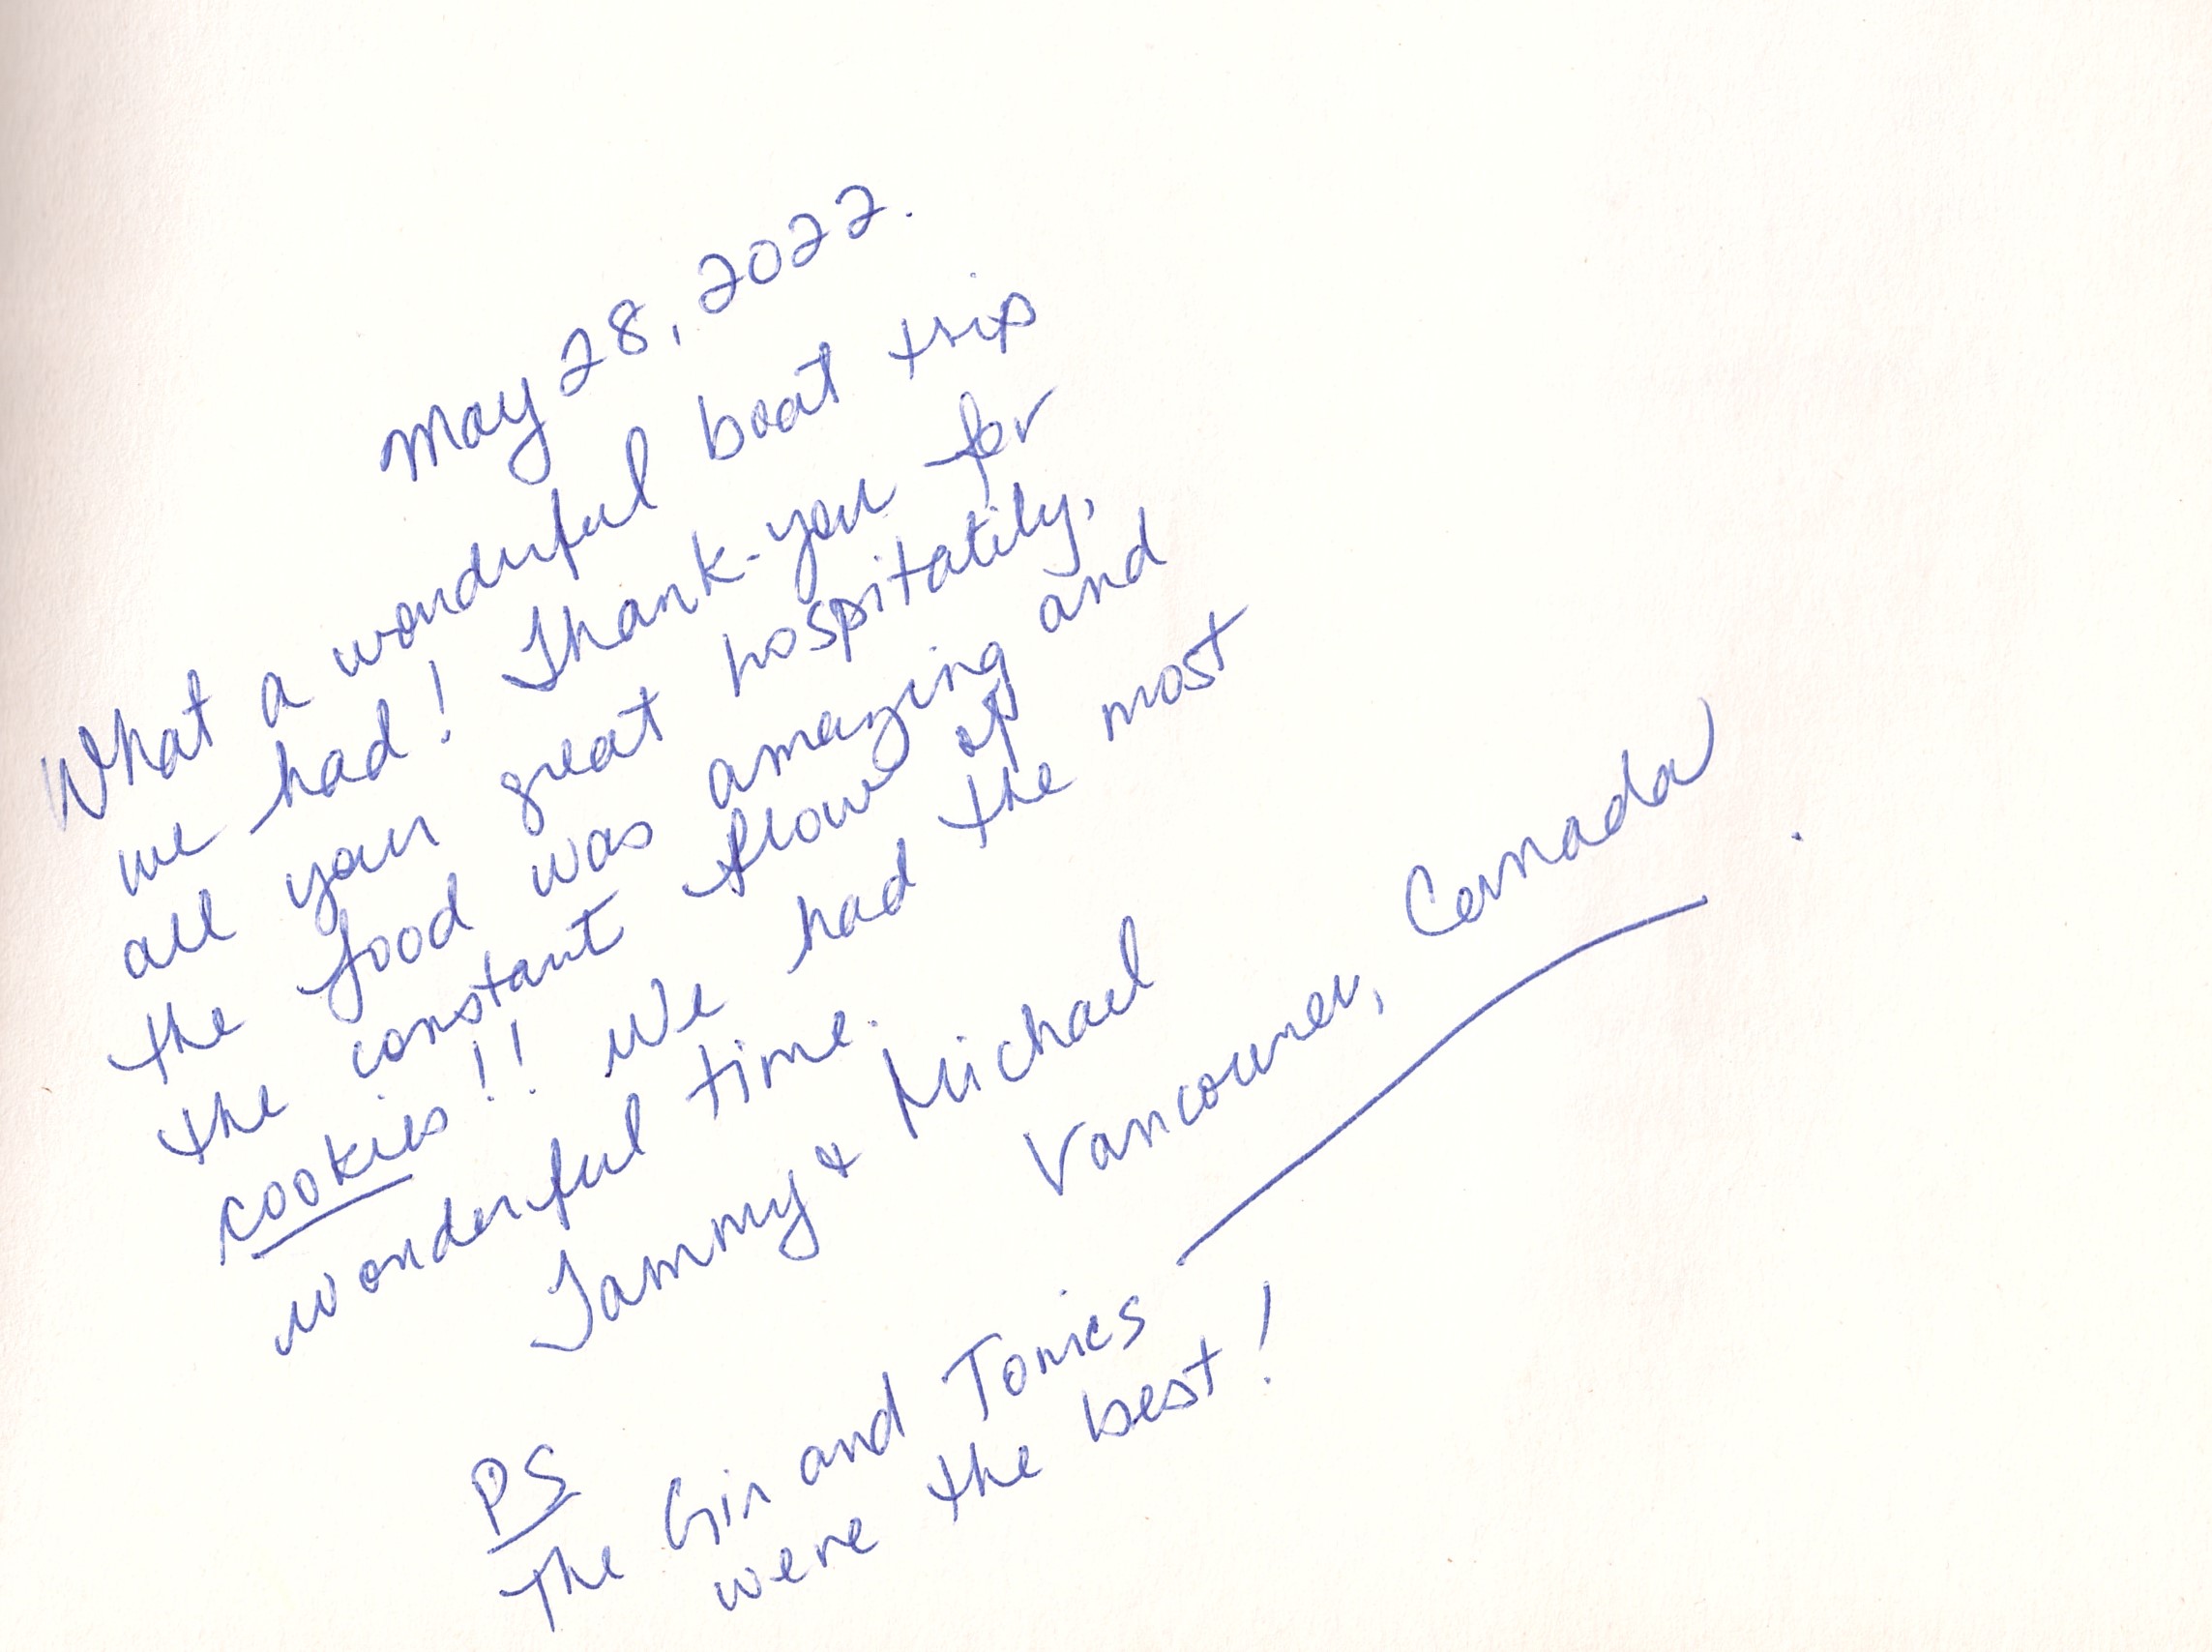 May 28, 2022.
What a wonderful boat trip
we had! Thank-you for
all your great hospitatily,
the food was amazing and
the constant flow of
cookies!! We had the most
wonderful time.
Tammy & Michael
Vancouver, Canada
PS
The Gin and Tonics
were the best!